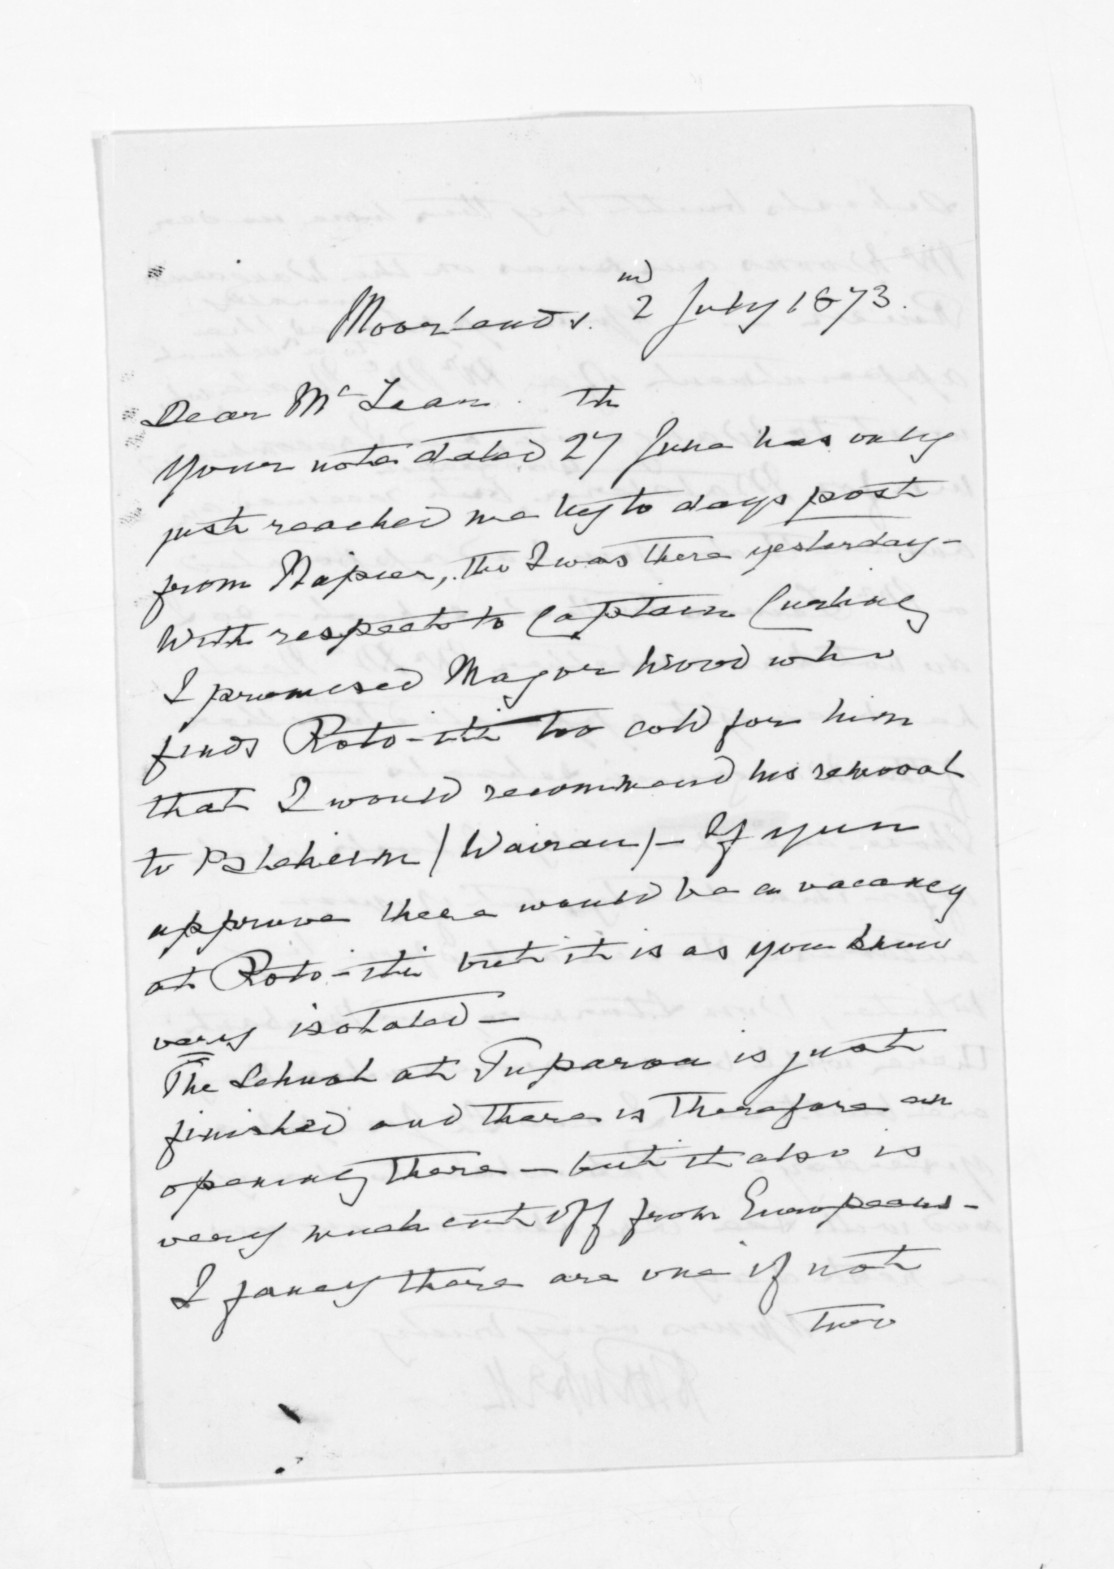 Moorlands. 2nd July 1873.
Dear McLean.
Your note dated 27th June has only
just reached me by to days post
from Napier, tho I was there yesterday -
With respect to Captain Curling
I promised Major Wood who
finds Roto-iti too cold for him
that I would recommend his removal
to (Wairau) - If you
approve there would be a vacancy
at Roto-iti but it is as you know
very isolated -
The School at Tuparoa is just
finished and there is therefore an
opening there - but it also is
very much cut off from Europeans -
I fancy there are one if not
two